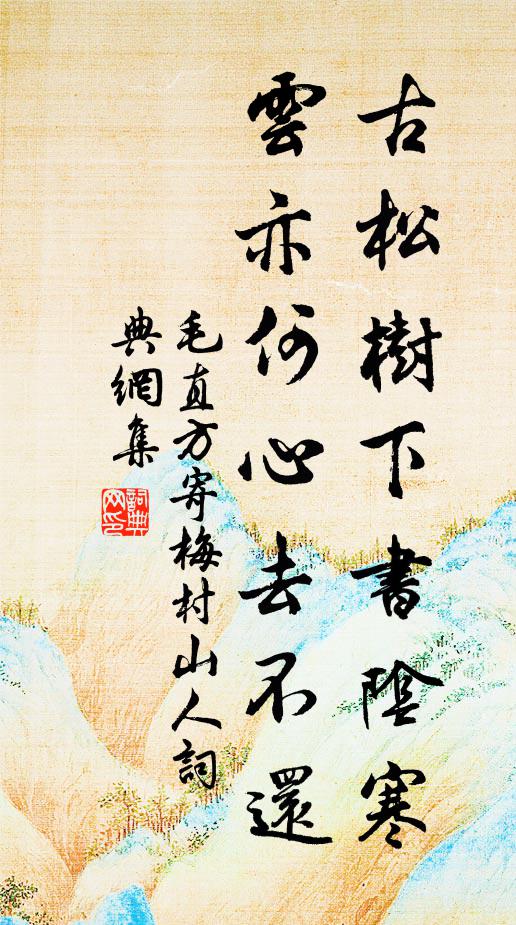 古松樹下書陰寒
雲亦何心去不還
毛直方寄梅村山人詞
典網集
詞典
网印